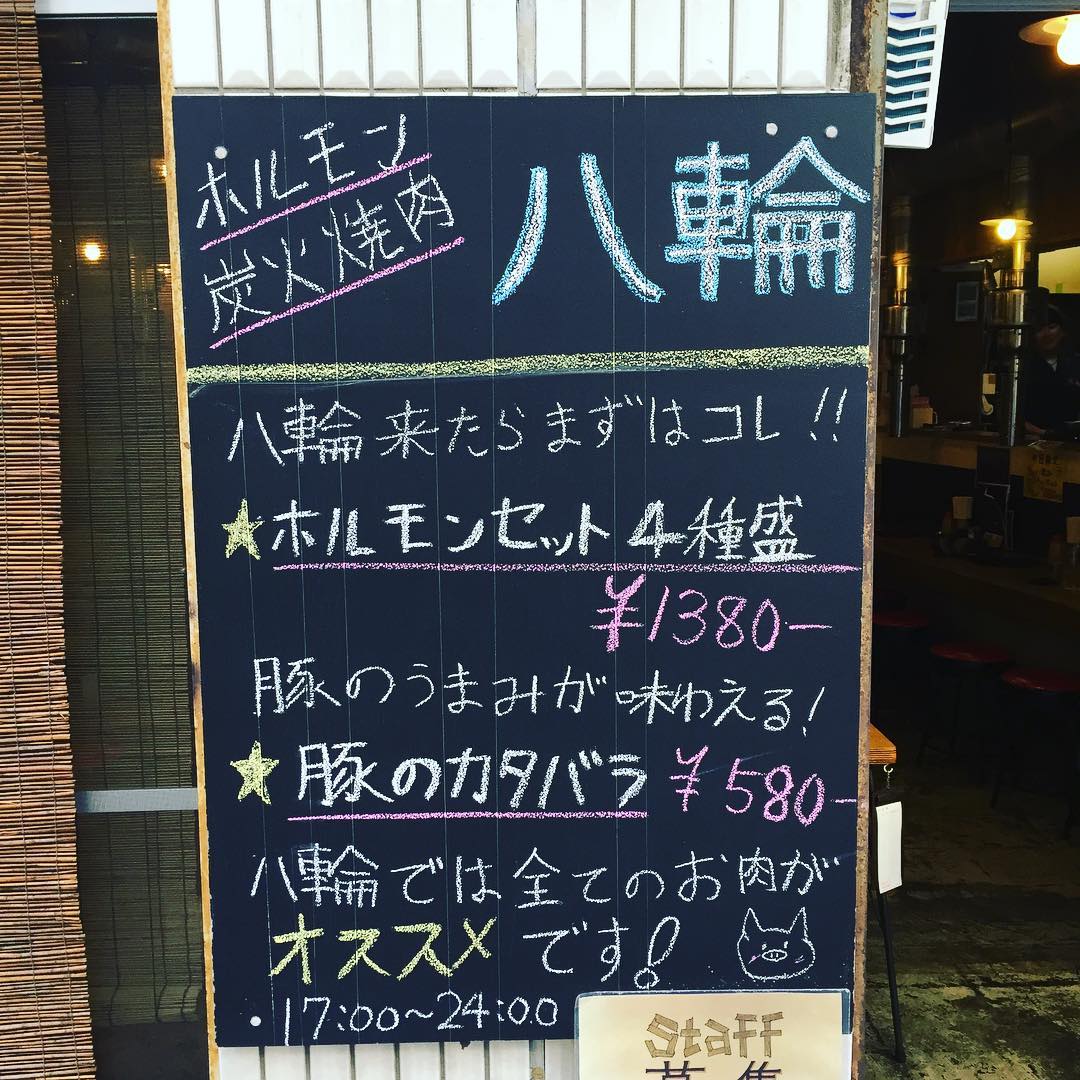 ホルモン
炭火焼肉
八輪
八輪来たらまずはコレ!!
★ホルモンセット4種盛
¥1380-
豚のうまみが味わえる!
★豚のカタバラ ¥580-
八輪では全てのお肉が
オススメです!
17:00~24:00
Staff
募集